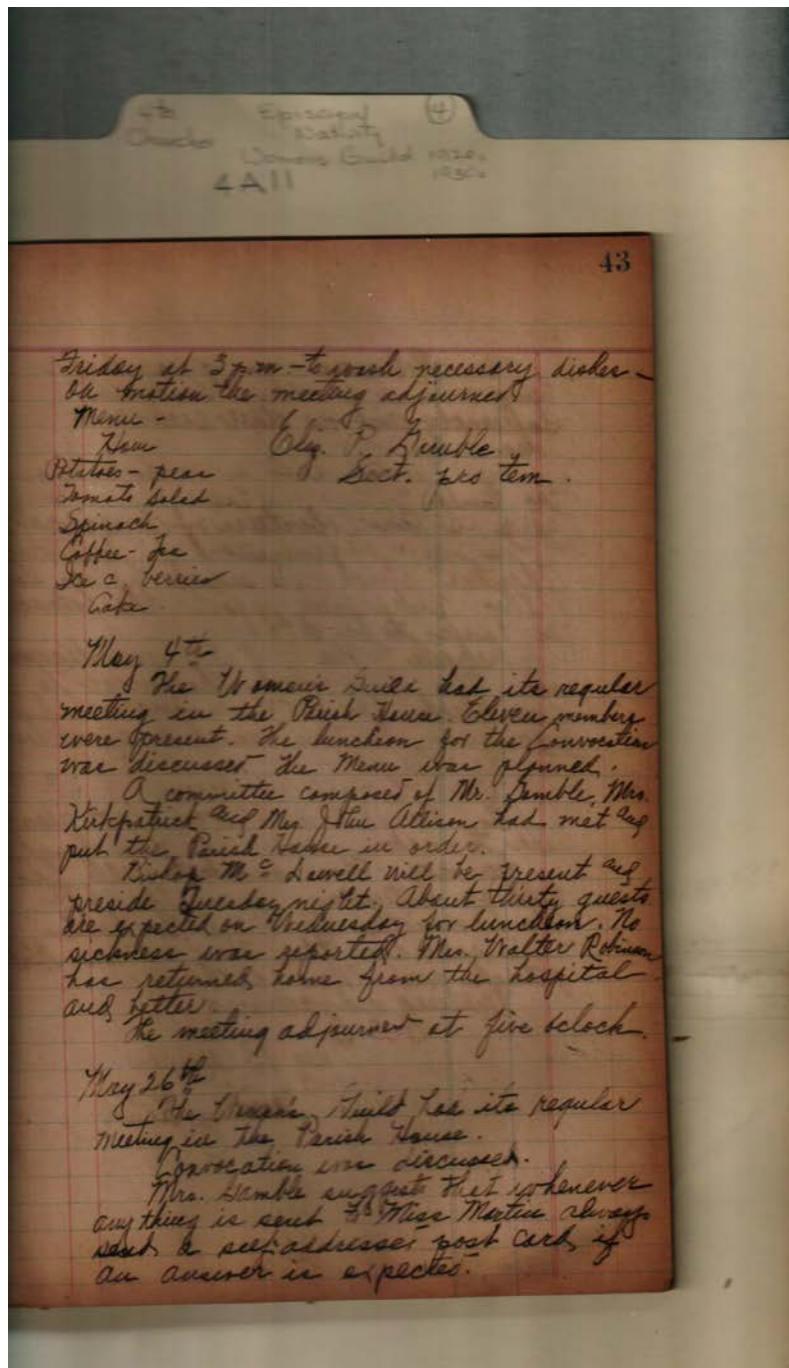 Episcopal ④
Nativity
Womens Guild 1920s
1930s
4A11
43
Friday at 3 p.m. - to wash necessary dishes -
on motion the meeting adjourned
Menu -
Ham
Eliz. P. Gamble
Potatoes - peas
Sect. pro tem.
Tomato Salad
Spinach
Coffee - Tea
Ice c. berries
Cake
May 4th
The Women's Guild had its regular
meeting in the Parish House. Eleven members
were present. The luncheon for the Convocation
was discussed. The Menu was planned.
A committee composed of Mr. Gamble, Mrs.
Kirkpatrick and Mrs John Allison had met and
put the Parish House in order.
Bishop McDowell will be present and
preside Tuesday night. About thirty guests
are expected on Wednesday for luncheon. No
sickness was reported. Mrs. Walter Robinson
has returned home from the hospital
and better.
The meeting adjourned at five oclock.
May 26th
The Women's Guild had its regular
meeting in the Parish House.
Convocation was discussed.
Mrs. Gamble suggests that whenever
anything is sent to Miss Martin always
send a self addressed post card if
an answer is expected.